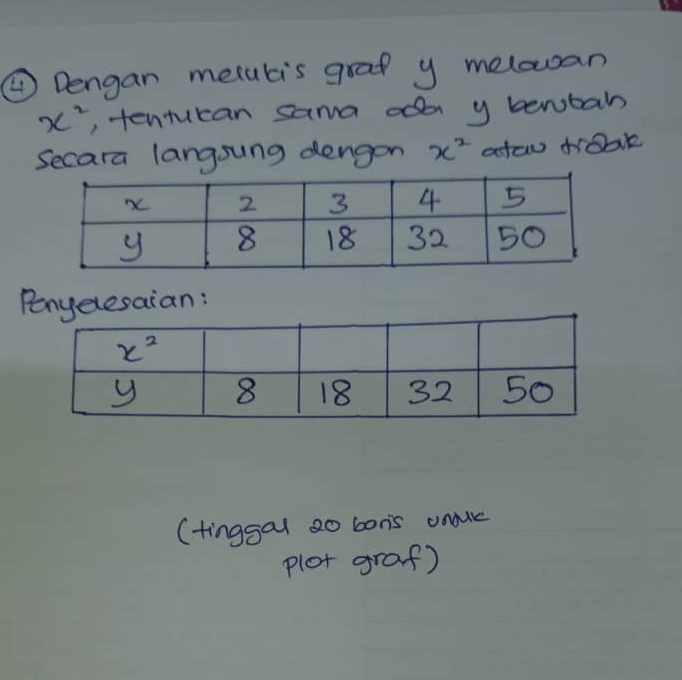 ④ Dengan melukis graf y melawan
x², tentukan sama ada y berubah
secara langsung dengan x² atau tidak
x 2 3 4 5
y 8 18 32 50
Penyelesaian:
x²
y 8 18 32 50
(tinggal 20 baris untuk
plot graf)